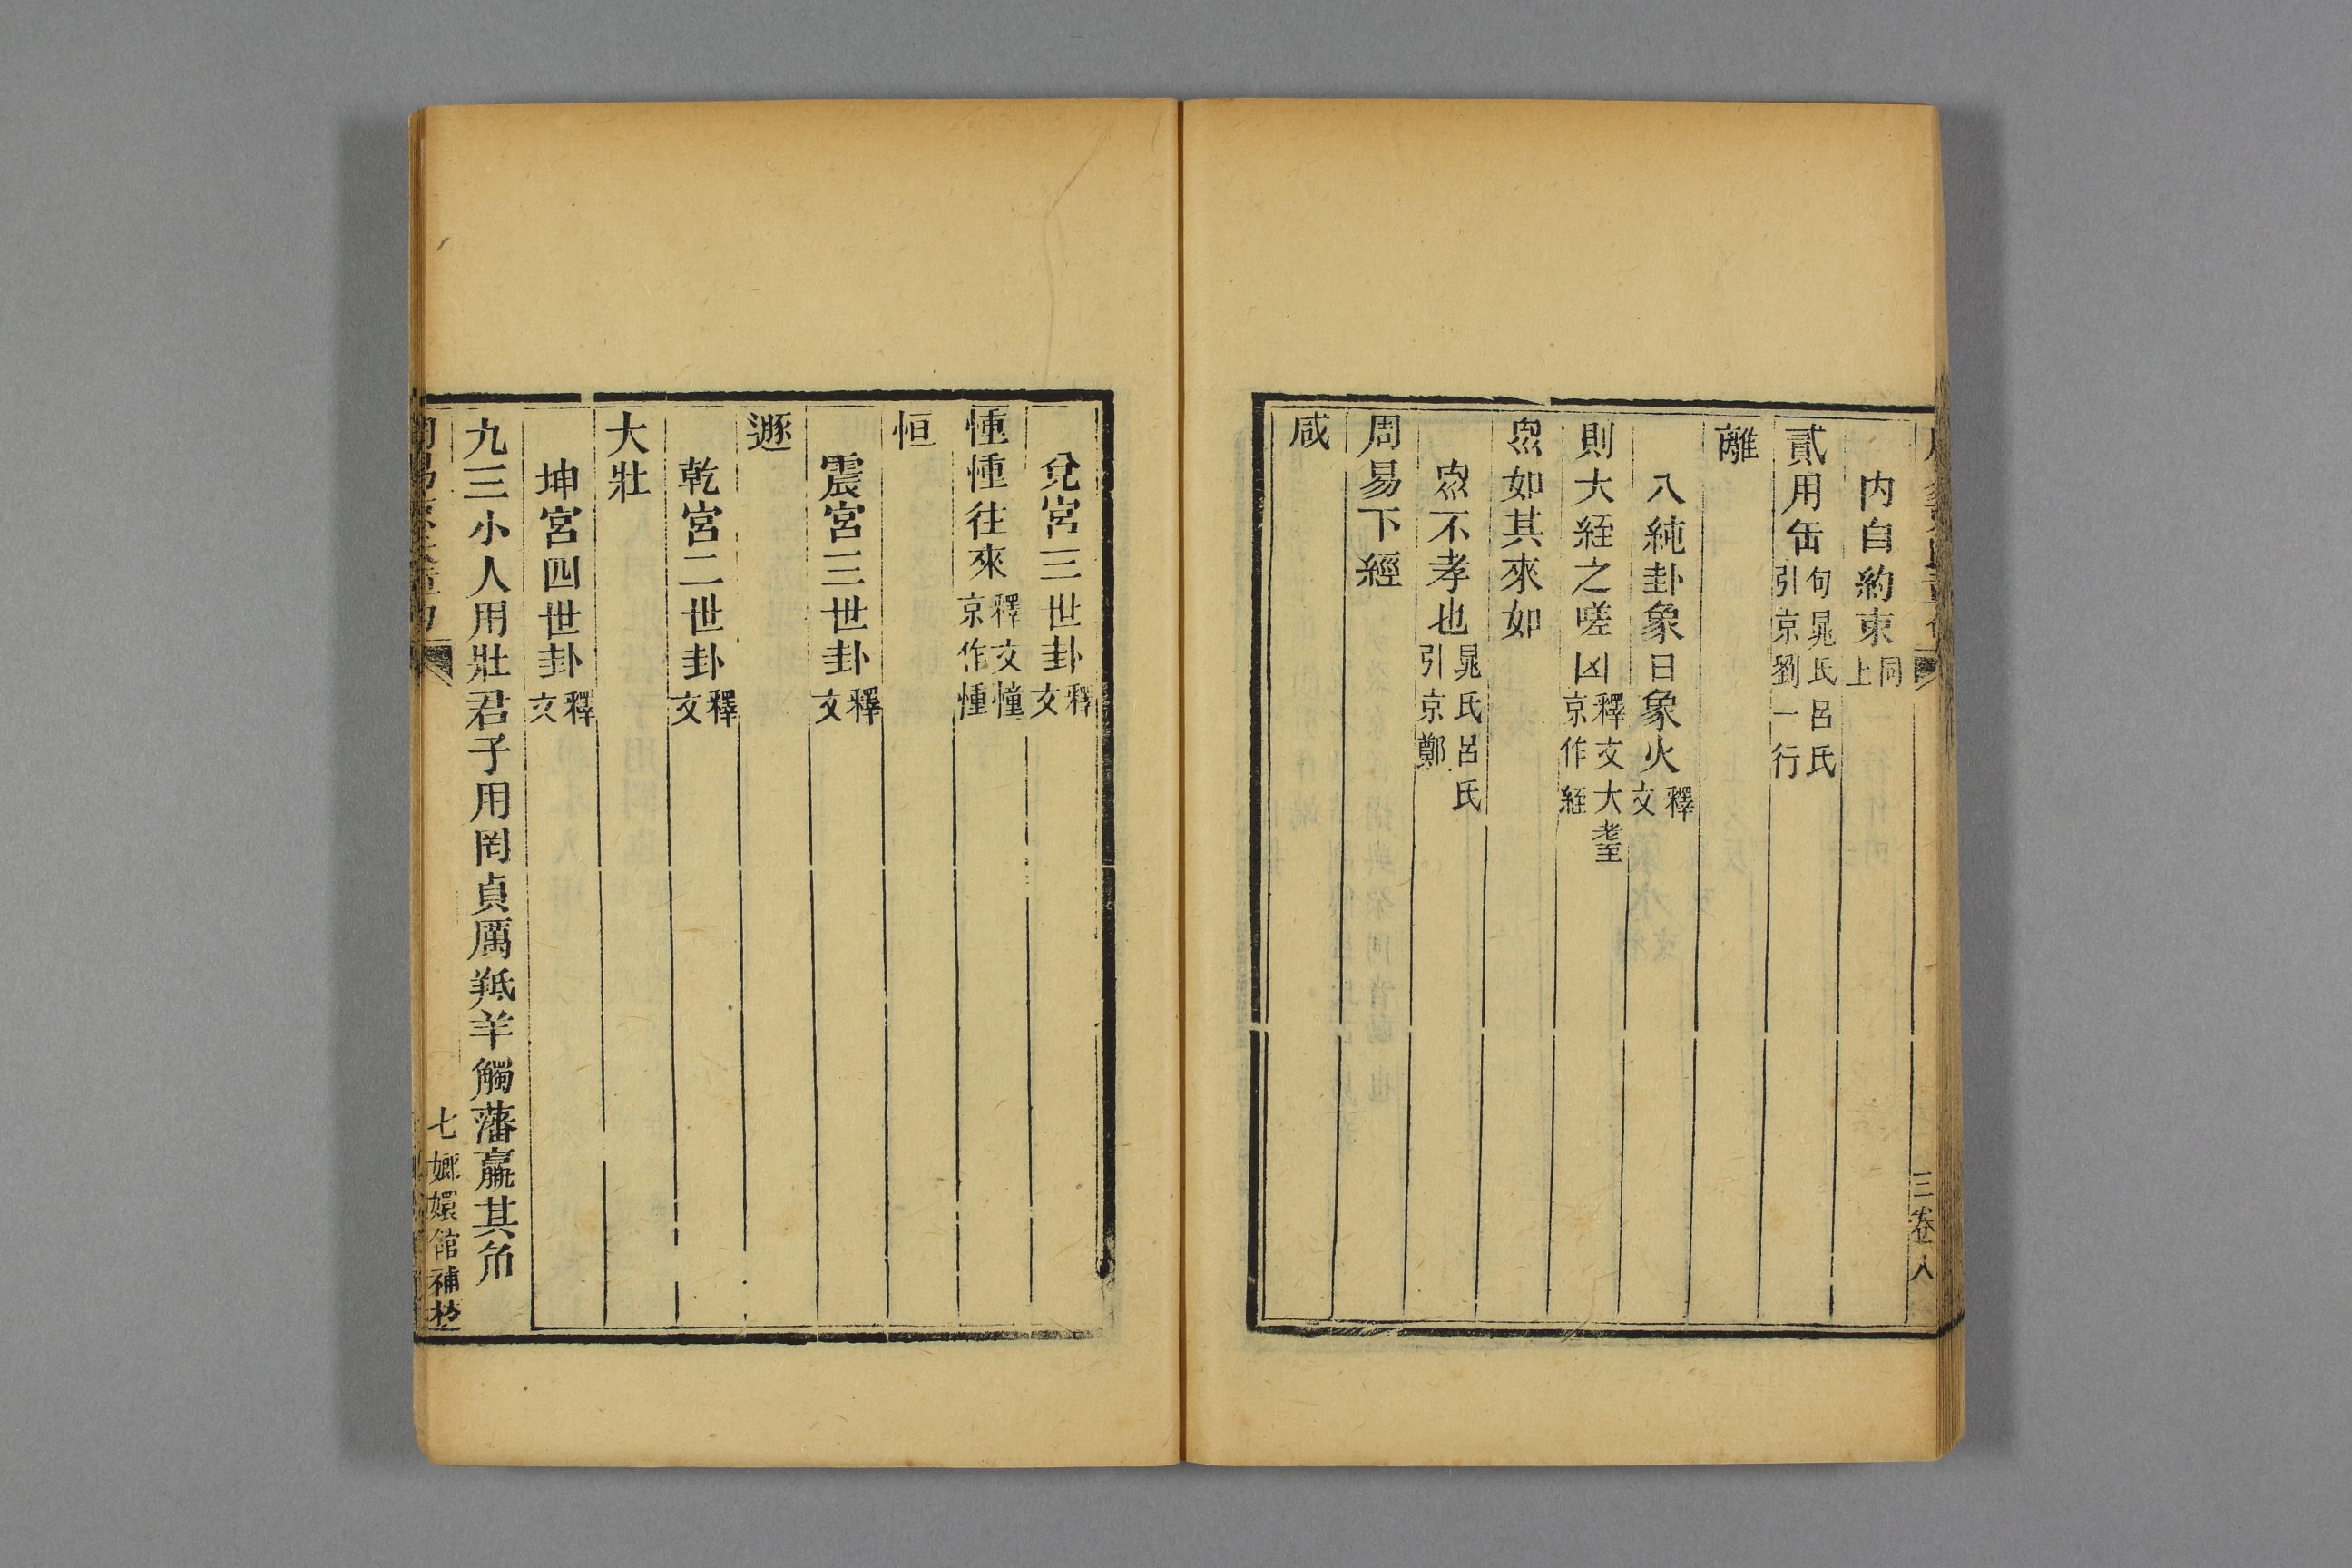 內自約束同上
貳用缶句晁氏呂氏引京劉一行
離
八純卦象日象火釋文
則大絰之嗟凶釋文大耋京作絰
㐬如其來如
㐬不孝也晁氏呂氏引京鄭
周易下經
咸
三卷八
兌宮三世卦釋文
㣫㣫往來釋文憧京作㣫
恒
震宮三世卦釋文
遯
乾宮二世卦釋文
大壯
坤宮四世卦釋文
九三小人用壯君子用罔貞厲羝羊觸藩羸其角
七 嫏嬛館補校